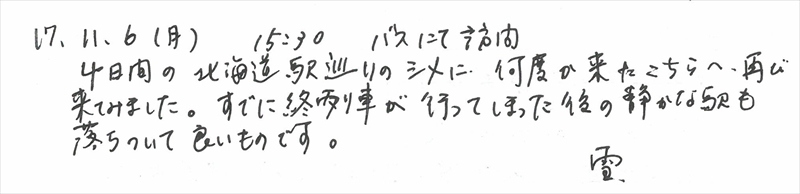 17. 11. 6 (月) 15:30 バスにて訪問
4日間の北海道駅巡りのシメに、何度か来たこちらへ、再び
来てみました。すでに終列車が行ってしまった後の静かな駅も
落ちついて良いものです。
雪